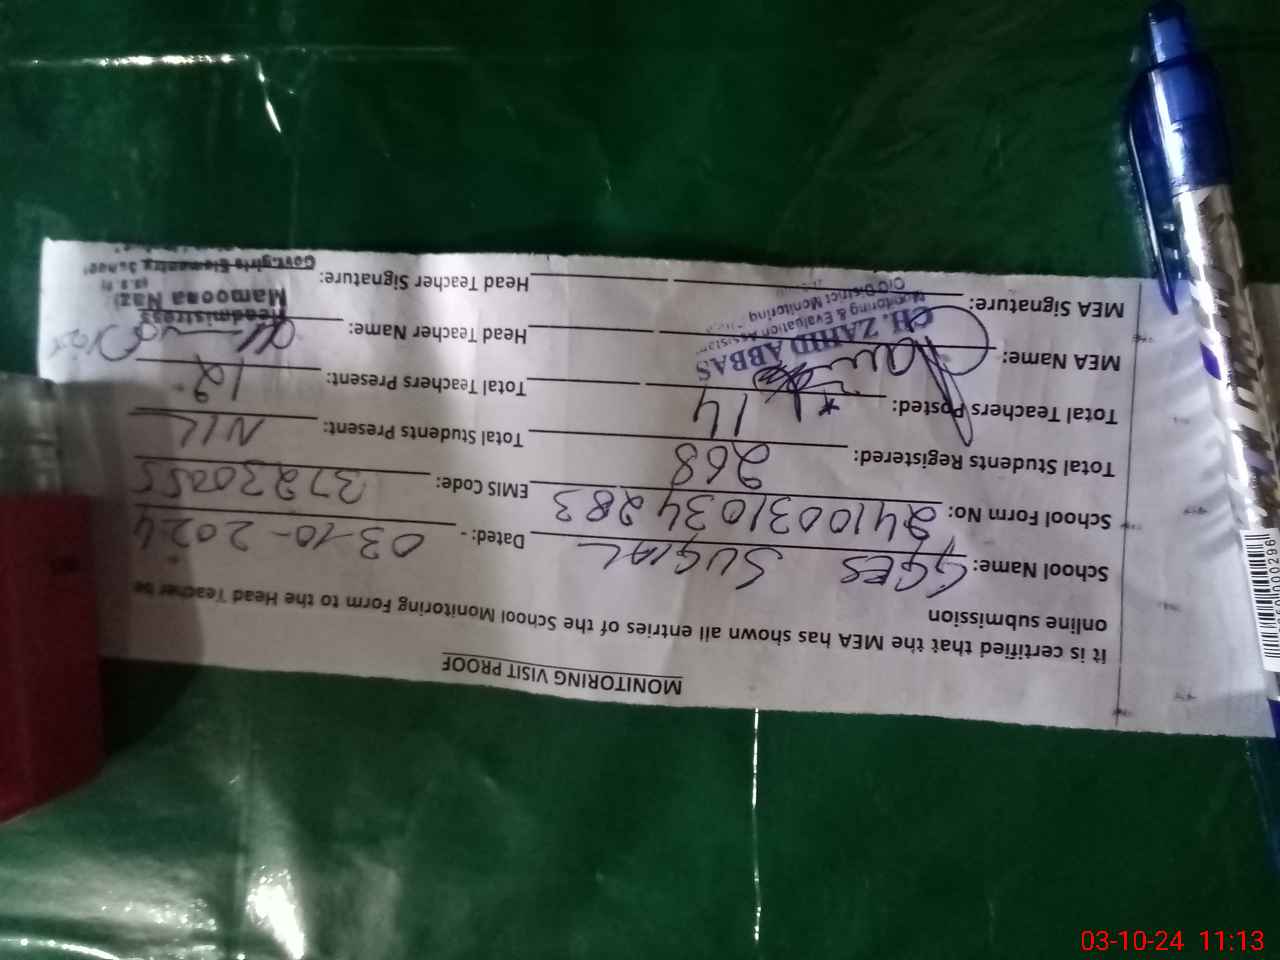 MONITORING VISIT PROOF
It is certified that the MEA has shown all entries of the School Monitoring Form to the Head Teacher be
online submission
School Name: GGES SUGIAL Dated: - 03-10-2024
School Form No: 2410031034283 EMIS Code: 37230055
Total Students Registered: 268 Total Students Present: NIL
Total Teachers Posted: 14 Total Teachers Present: 12
MEA Name: CH. ZAHID ABBAS Head Teacher Name:
Monitoring & Evaluation Assistant
O/O District Monitoring
MEA Signature: Head Teacher Signature:
Headmistress
Mamoona Naz
Govt.girls Elementry School
03-10-24 11:13